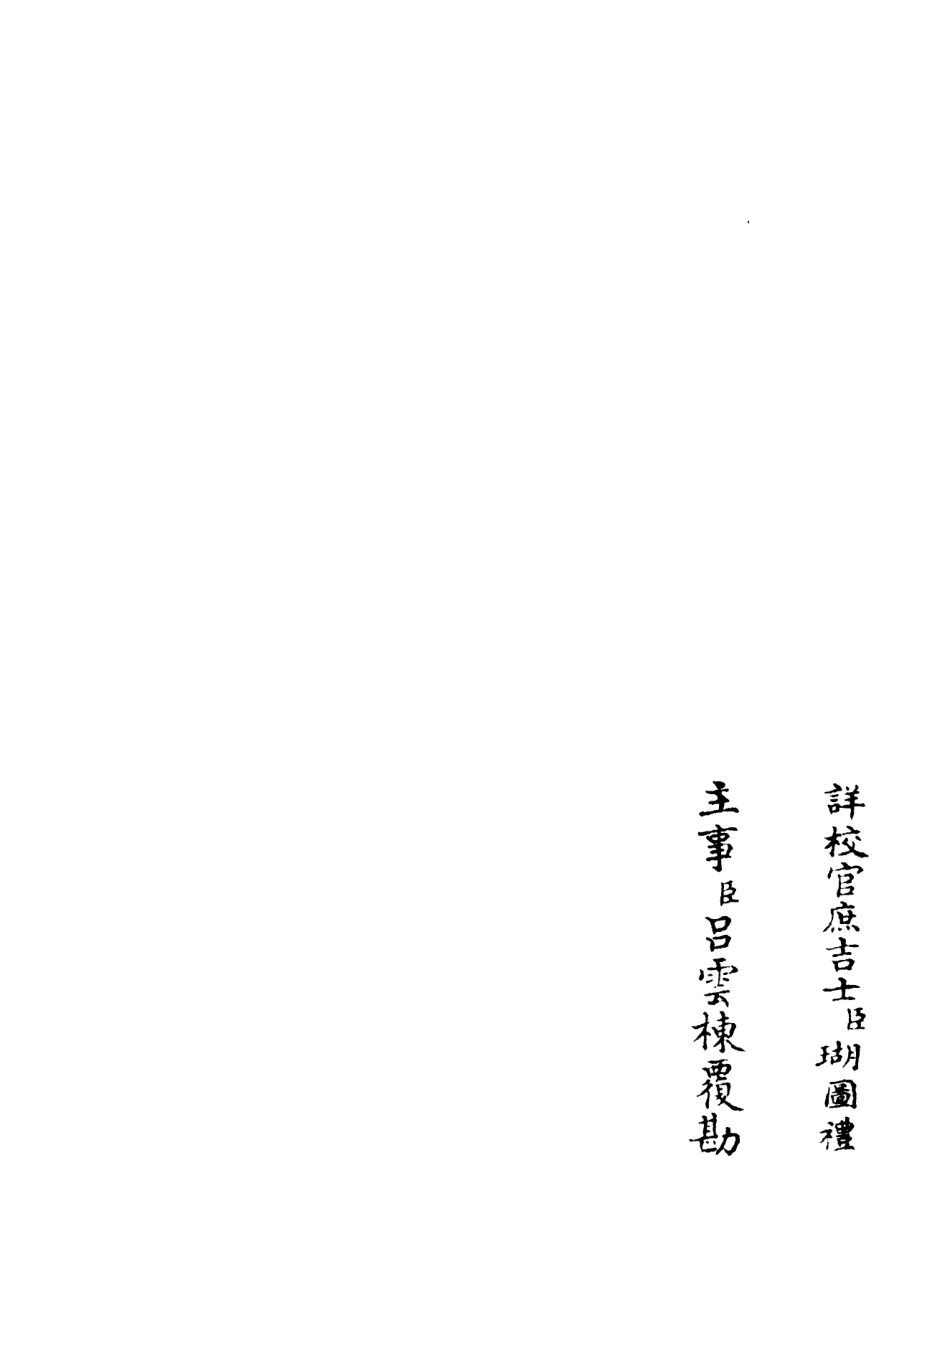 詳校官庶吉士臣瑚圖禮
主事臣呂雲棟覆勘